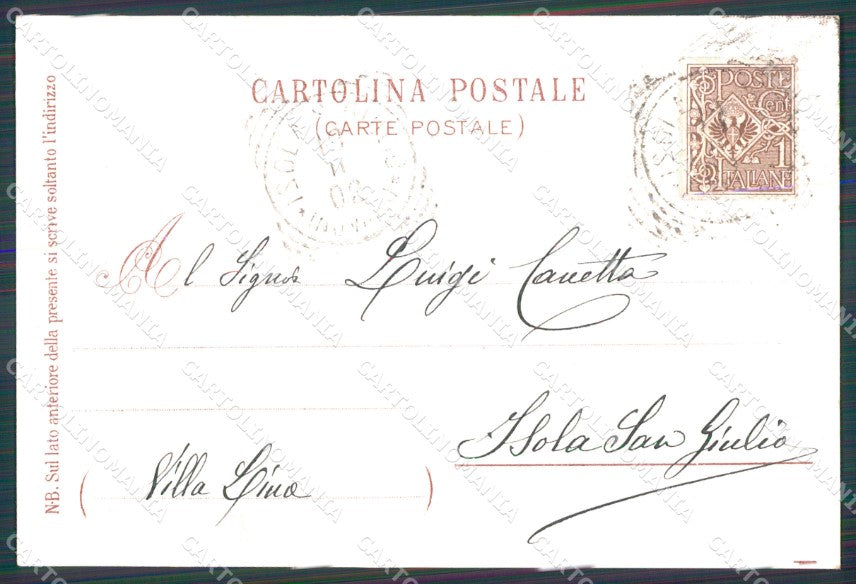 CARTOLINA POSTALE
(CARTE POSTALE)
POSTE
Cent
1
ITALIANE
Al Signor Luigi Canetta
Isola San Giulio
(Villa Lina)
N.B. Sul lato anteriore della presente si scrive soltanto l'indirizzo
CARTOLINOMANIA